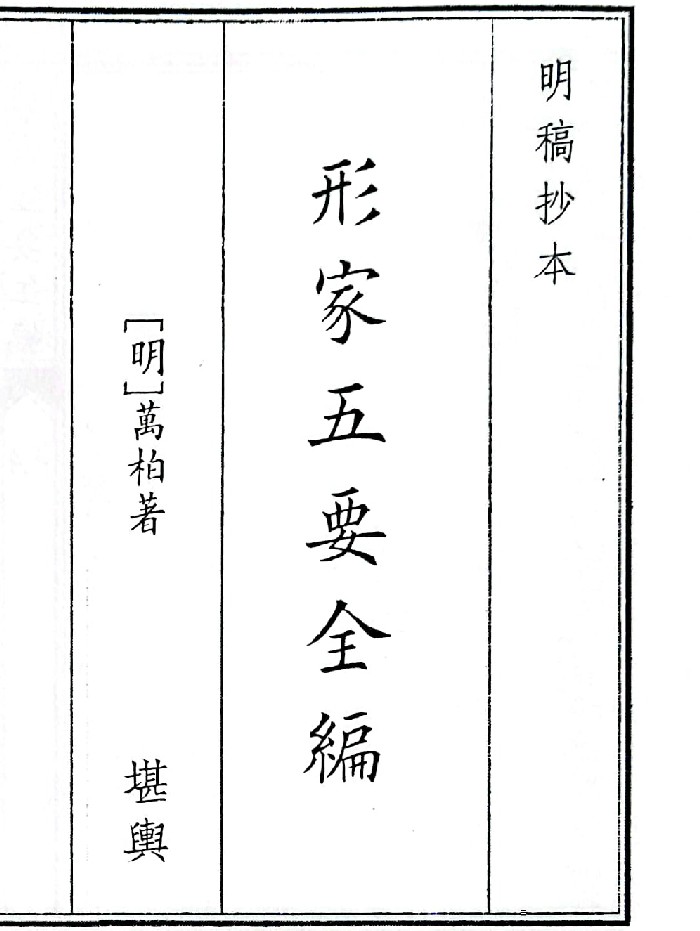 明稿抄本
形家五要全編
[明]萬柏著
堪輿